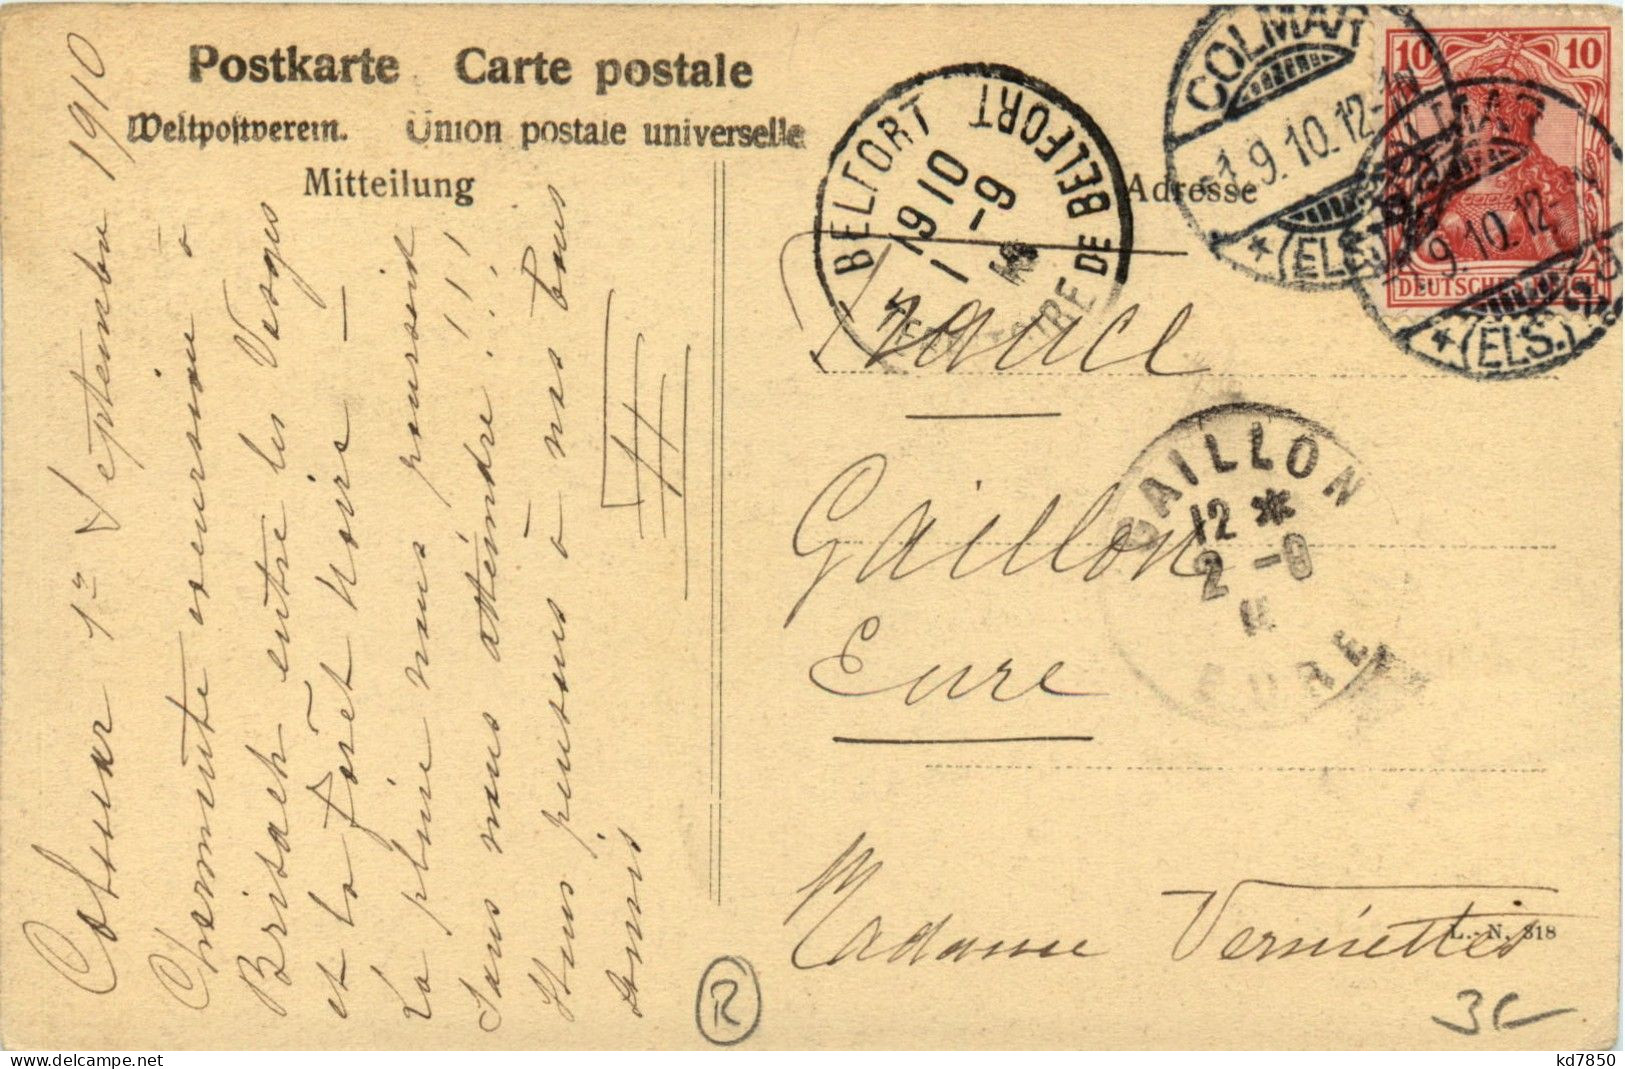 Postkarte Carte postale
Weltpostverein. Union postale universelle
Mitteilung
Adresse
Colmar 1er Septembre 1910
Charmante excursion à
Brisach entre les Vosges
et la Forêt Noire —
La pluie nous poursuit
sans nous atteindre !!!!
Nous pensons à nos bons
amis
BELFORT
1910
1-9
BELFORT
DE BELFORT
COLMAR
1.9.10.12-1N
* (ELS.)
COLMAR
9.10.12-1N
* (ELS.)
10 10
DEUTSCHES REICH
France
Gaillon
Eure
GAILLON
12 *
2 -9
EURE
Madame Verniettes
L.-N. 318
R
3€
www.delcampe.net
kd7850